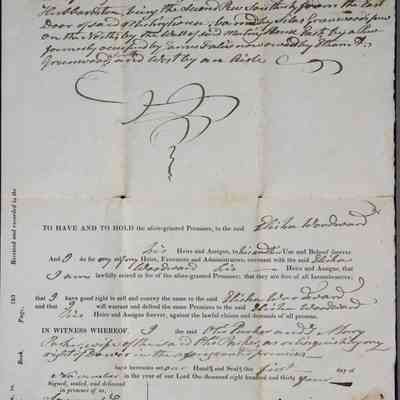 Hubbardston, being the second Pew South from the East
Door of said Meeting house, bounded by Silas Greenwoods pew
on the North, by the Wall of said Meeting House East, by a Pew
formerly occupied by now owned by
Greenwood, and West by an Aisle
TO HAVE AND TO HOLD the afore-granted Premises, to the said Elisha Woodward
his Heirs and Assigns, to his and their Use and Behoof forever.
And I do for my Heirs, Executors and Administrators, covenant with the said Elisha
Woodward his Heirs and Assigns, that
I am lawfully seized in fee of the afore-granted Premises; that they are free of all Incumbrances;
that I have good right to sell and convey the same to the said Elisha Woodward
and that I will warrant and defend the same Premises to the said Elisha Woodward
his Heirs and Assigns forever, against the lawful claims and demands of all persons.
IN WITNESS WHEREOF, I the said Otis Parker and I, Mercy
Parker, wife of the said Otis Parker, as relinquish my
right of Dower in the aforementioned premises
have hereunto our Hands and Seals this first day of
November in the year of our Lord One thousand eight hundred and thirty four
Signed, sealed, and delivered
in presence of us,
Received and recorded in the
Book, 193 Page,